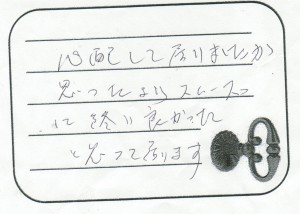 心配して居りましたが
思ったよりスムーズ
に終り良かった
と思って居ります